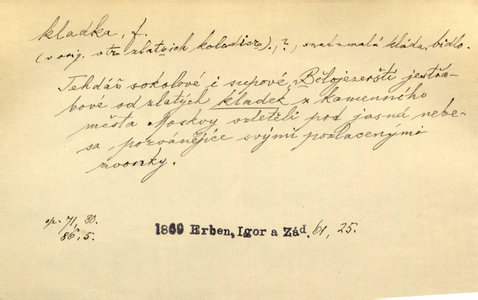 kladka, f.
(v orig. otъ zlatyich kolodicъ), ?, snad = malá kláda, bidlo.
Tehdáž sokolové i supové, Bělojezerští jestřá-
bové od zlatých kladek z kamenného
města Moskvy vzletěli pod jasná nebe-
sa, pozvánějíce svými pozlacenými
zvonky.
op. 71, 30.
86, 5.
1869 Erben, Igor a Zád. 61, 25.